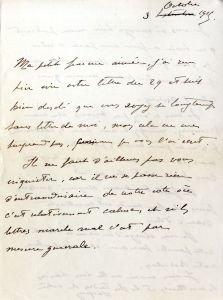 3 Octobre
Ma petite
bien lire votre lettre du 29 et suis
bien désolé que vous soyez si longtemps
sans lettre de moi, mais cela ne me
surprend pas, je vous l'ai écrit.
Il ne faut d'ailleurs pas vous
inquiéter, car il ne se passe rien
d'extraordinaire de notre côté où
c'est absolument calme, et si les
lettres marche mal c'est par
mesure générale.